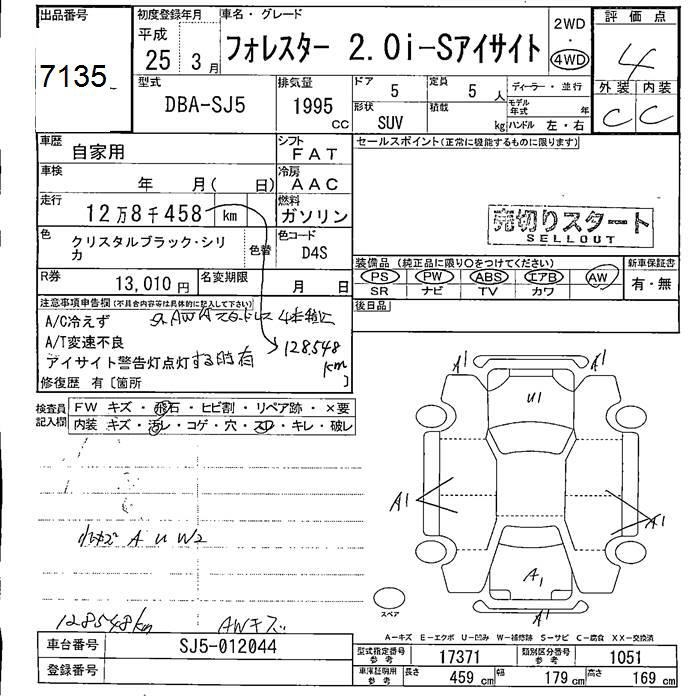 出品番号 初度登録年月 車名・グレード 2WD 評価点
7135 平成 25 3月 フォレスター 2.0i-Sアイサイト ・ 4WD 4
型式 排気量 ドア 5 定員 5人 ディーラー・並行 外装 内装
DBA-SJ5 1995 CC 形状 SUV 積載 kg モデル年式 年 ハンドル 左・右 C C
車歴 自家用 シフト FAT セールスポイント(正常に機能するものに限ります)
車検 年 月( 日) 冷房 AAC
走行 12万8千458 km 燃料 ガソリン
売切りスタート
SELLOUT
色 クリスタルブラック・シリカ 色替 色コード D4S
装備品(純正品に限り○をつけてください) 新車保証書
R券 13,010円 名変期限 月 日
PS PW ABS エアB AW 有・無
SR ナビ TV カワ
注意事項申告欄(不具合内容等は具体的に記入して下さい) 後日品
A/C冷えず
A/T変速不良 128,548km
アイサイト警告灯点灯する時有
修復歴 有[箇所 ]
検査員記入欄 FW キズ・飛石・ヒビ割・リペア跡・×要
内装 キズ・汚レ・コゲ・穴・スレ・キレ・破レ
A1 A1
U1
A1 A1
A U W2
A1
A1
スペア
128548km AWキズ
A-キズ E-エクボ U-凹み W-補修跡 S-サビ C-腐食 XX-交換済
車台番号 SJ5-012044 型式指定番号 参考 17371 類別区分番号 参考 1051
登録番号 車庫証明用 参考 長さ 459cm 幅 179cm 高さ 169cm